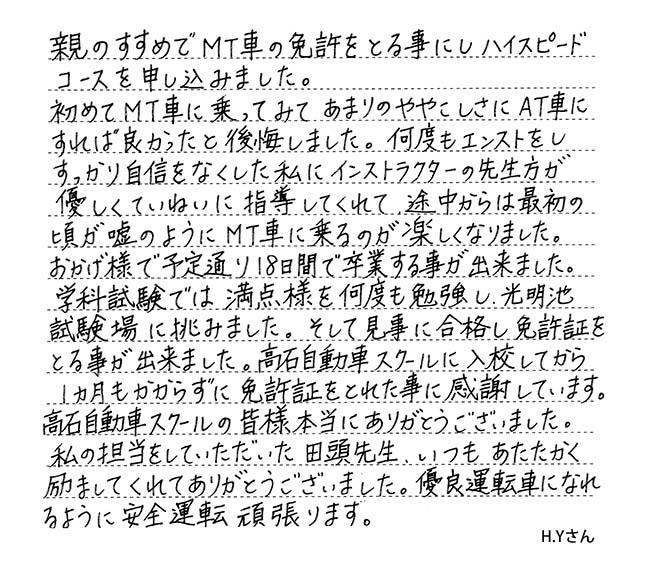 親のすすめでMT車の免許をとる事にし ハイスピード
コースを申し込みました。
初めてMT車に乗ってみて あまりのややこしさにAT車に
すれば良かったと後悔しました。何度もエンストをし
すっかり自信をなくした私にインストラクターの先生方が
優しくていねいに指導してくれて、途中からは最初の
頃が嘘のようにMT車に乗るのが楽しくなりました。
おかげ様で予定通り18日間で卒業する事が出来ました。
学科試験では 満点様を何度も勉強し、光明池
試験場に挑みました。そして見事に合格し免許証を
とる事が出来ました。高石自動車スクールに入校してから
1カ月もかからずに免許証をとれた事に感謝しています。
高石自動車スクールの皆様本当にありがとうございました。
私の担当をしていただいた田頭先生、いつもあたたかく
励ましてくれてありがとうございました。優良運転車になれ
るように安全運転頑張ります。
H.Yさん